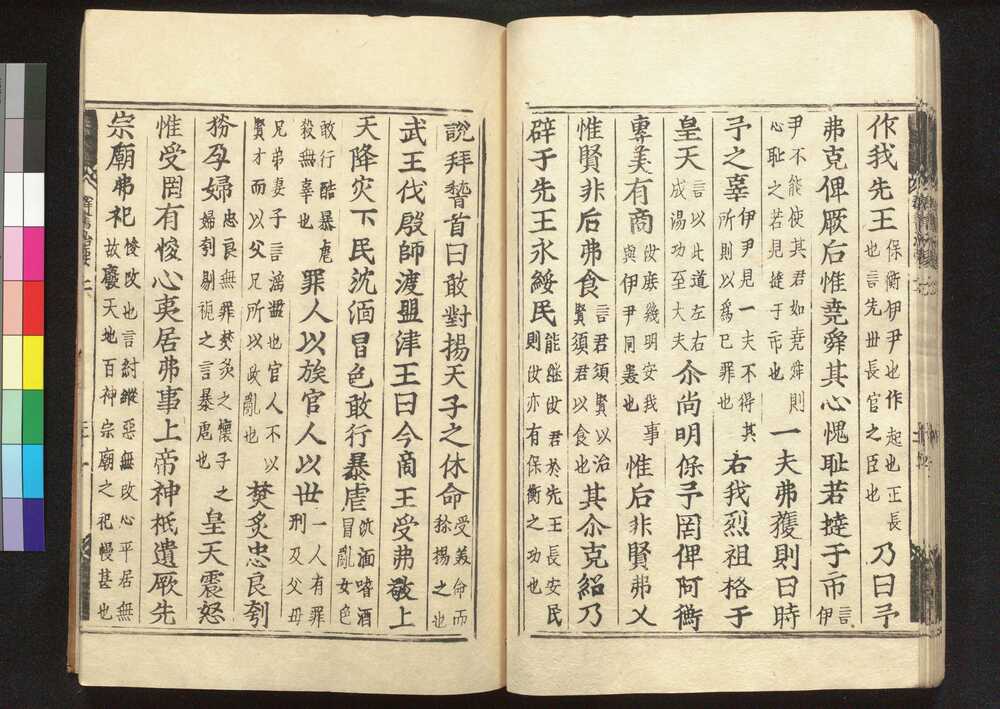 作我先王保衡伊尹也作起也正長也言先世長官之臣也乃曰予
弗克俾厥后惟堯舜其心愧恥若撻于市言伊
尹不能使其君如堯舜則心恥之若見撻于市也一夫弗獲則曰時
予之辜伊尹見一夫不得其所則以爲已罪也右我烈祖格于
皇天言以此道左右成湯功至大夫尒尚明保予罔俾阿衡
專美有商汝庶幾明安我事與伊尹同美也惟后非賢弗乂
惟賢非后弗食言君須賢以治賢須君以食也其尒克紹乃
辟于先王永綏民能継汝君於先王長安民則汝亦有保衡之功也
說拜稽首曰敢對揚天子之休命受美命而稱揚之也
武王伐殷師渡盟津王曰今商王受弗敬上
天降灾下民沈湎冒色敢行暴虐沈湎嗜酒冒亂女色
敢行酷暴虐殺無辜也罪人以族官人以世一人有罪刑及父母
兄弟妻子言滛濫也官人不以賢才而以父兄所以政亂也焚炙忠良刳
剔孕婦忠良無罪焚炙之懷子之婦刳剔視之言暴虐也皇天震怒
惟受罔有悛心夷居弗事上帝神祇遺厥先
宗廟弗祀悛改也言紂縱惡無改心平居無故廢天地百神宗廟之祀慢甚也